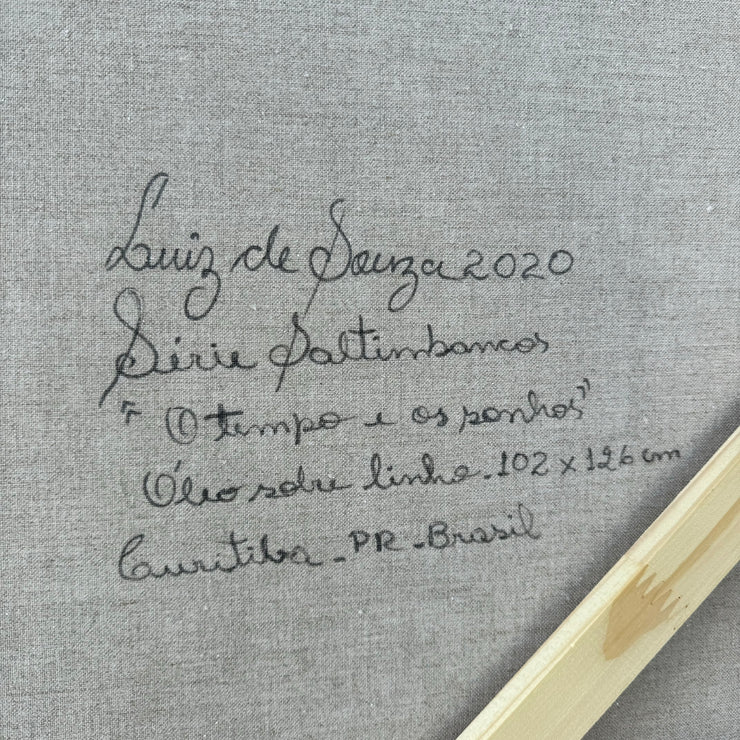 Luiz de Souza 2020
Série Saltimbancos
"O tempo e os sonhos"
Óleo sobre linho. 102 x 126 cm
Curitiba - PR - Brasil